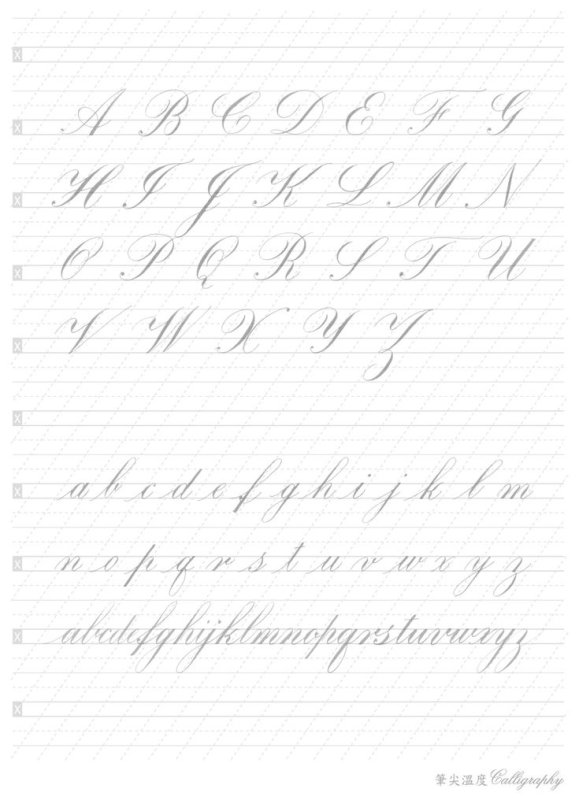 X
X A B C D E F G
X H I J K L M N
X O P Q R S T U
X V W X Y Z
X
X a b c d e f g h i j k l m
X n o p q r s t u v w x y z
X abcdefghijklmnopqrstuvwxyz
X
筆尖溫度 Calligraphy